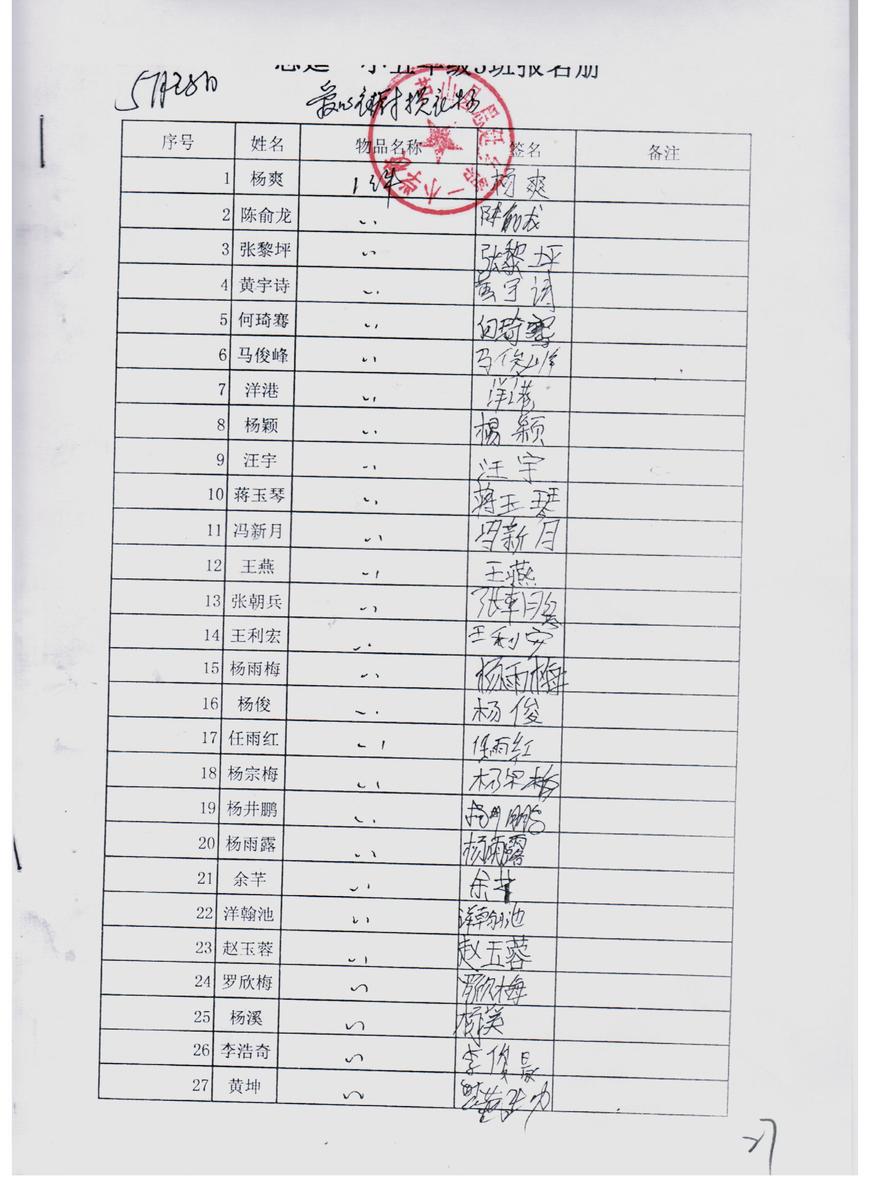 思延一小五年级3班报名册
5月28日
序号 姓名 物品名称 签名 备注
1 杨爽 1件 杨爽
2 陈俞龙 〃 陈俞龙
3 张黎坪 〃 张黎坪
4 黄宇诗 〃 黄宇诗
5 何琦骞 〃
6 马俊峰 〃 马俊峰
7 洋港 〃 洋港
8 杨颖 〃 杨颖
9 汪宇 〃 汪宇
10 蒋玉琴 〃 蒋玉琴
11 冯新月 〃 冯新月
12 王燕 〃 王燕
13 张朝兵 〃
14 王利宏 〃
15 杨雨梅 〃 杨雨梅
16 杨俊 〃 杨俊
17 任雨红 〃 任雨红
18 杨宗梅 〃 杨宗梅
19 杨井鹏 〃 杨井鹏
20 杨雨露 〃 杨雨露
21 余芊 〃 余芊
22 洋翰池 〃 洋翰池
23 赵玉蓉 〃 赵玉蓉
24 罗欣梅 〃 罗欣梅
25 杨溪 〃 杨溪
26 李浩奇 〃
27 黄坤 〃
27